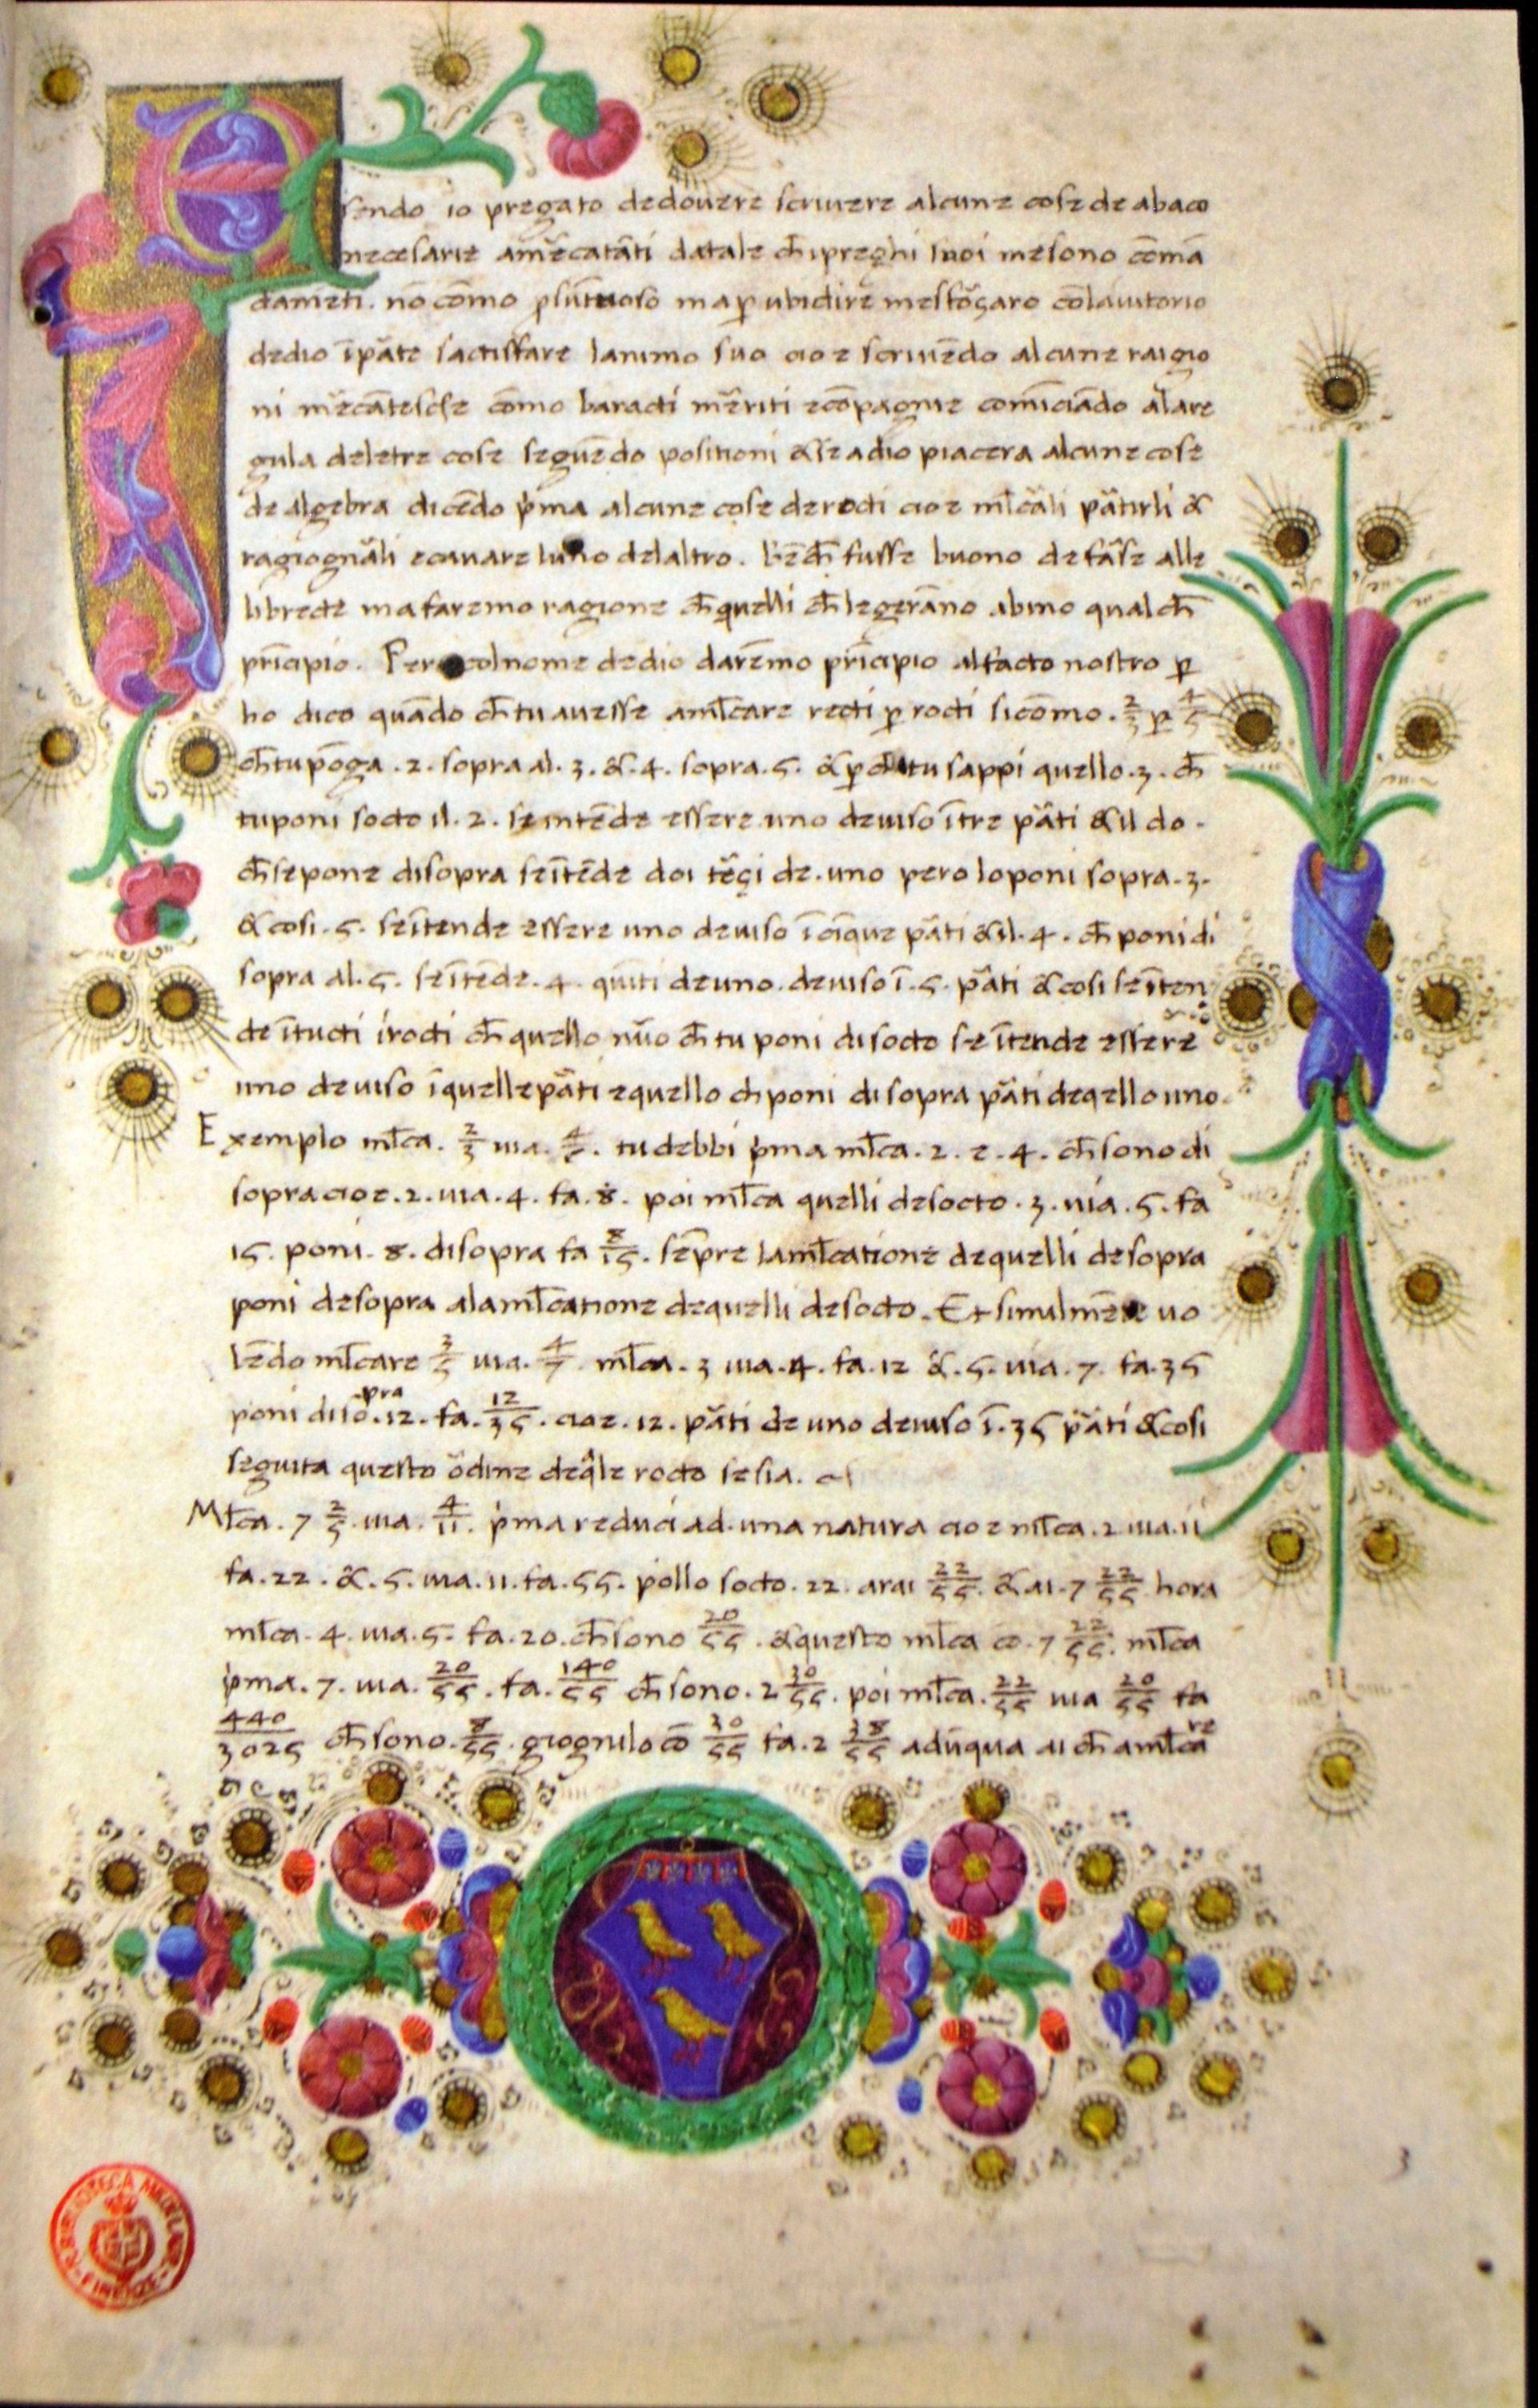 Esendo io pregato dedouere scriuere alcune cose de abaco
necesarie am̄ecatāti datale ch̄ ipreghi suoi mesono cōmā
damēti. nō cōmo psūtuoso ma ꝑ ubidire mesforçaro cōlaiutorio
dedio īpāte sactisfare lanimo suo cioe scriuēdo alcune raigio
ni mēcātesche cōmo baracti mēriti ecōpagnie comīciādo alare
gula deletre cose seguēdo positioni & se adio piacera alcune cose
de algebra dicēdo p̄ma alcune cose derocti cioe ml̄cāli pātirli &
ragiognāli ecauare luno delaltro. bēch̄ fusse buono defāse alle
librecte ma faremo ragione ch̄ quelli ch̄ legerāno abino qualch̄
prīcipio. Pero colnome dedio darēmo prīcipio alfacto nostro ꝑ
ho dico quādo ch̄ tu auesse aml̄care rocti ꝑ rocti sicōmo. 2/3 ꝑ 4/5
ch̄ tu pōga .2. sopra al. 3. &. 4. sopra. 5. & ꝑ ch̄ tu sappi quello .3. ch̄
tu poni socto il. 2. se intēde essere uno deuiso ītre pāti & il do.
ch̄ sepone disopra seītēde doi tēçi de. uno pero loponi sopra. 3.
& cosi. 5. seītende essere uno deuiso ī cīque pāti & il. 4. ch̄ poni di
sopra al. 5. seītēde. 4. quīti de uno. deuiso ī. 5. pāti & cosi seīten
de ītucti irocti ch̄ quello nūo ch̄ tu poni disocto se ītende essere
uno deuiso īquelle pāti equello ch poni disopra pāti deqello uno.
Exemplo ml̄ca. 2/3 uia. 4/5. tu debbi p̄ma ml̄ca. 2. e. 4. ch̄ sono di
sopra cioe. 2. uia. 4. fa. 8. poi ml̄ca quelli desocto. 3. uia. 5. fa
15. poni. 8. disopra fa 8/15. sēpre laml̄catione dequelli desopra
poni desopra alaml̄catione dequelli desocto. Et similmēte uo
lēdo ml̄care 3/5 uia. 4/7 ml̄ca. 3 uia. 4. fa. 12 &. 5. uia. 7. fa. 35
poni disopra. 12. fa. 12/35. cioe. 12. pāti de uno deuiso ī. 35 pāti & cosi
seguita questo ōdine deq̄le rocto se sia.
Ml̄ca. 7 2/5 uia. 4/11. p̄ma reduci ad. una natura cioe ml̄ca. 2 uia. 11
fa. 22. &. 5. uia. 11. fa. 55. pollo socto. 22. arai 22/55. & ai. 7 22/55 hora
ml̄ca. 4. uia. 5. fa. 20. ch̄ sono 20/55. & questo ml̄ca cō. 7 22/55. ml̄ca
p̄ma. 7. uia. 20/55. fa. 140/55 ch̄ sono. 2 30/55. poi ml̄ca. 22/55 uia 20/55 fa
440/3025 ch̄ sono. 8/55. giognilo cō 30/55 fa. 2 38/55 adūqua ai ch̄ aml̄care
3
FIRENZE